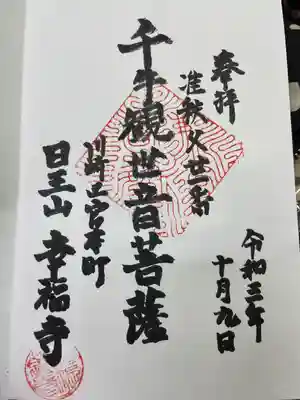 奉拝
准秩父廿番
千手観世音菩薩
川崎市宮本町
日王山 幸福寺
令和三年
十月九日